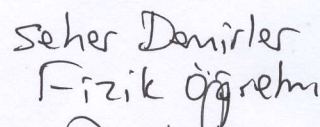 Seher Demirler
Fizik Öğretm